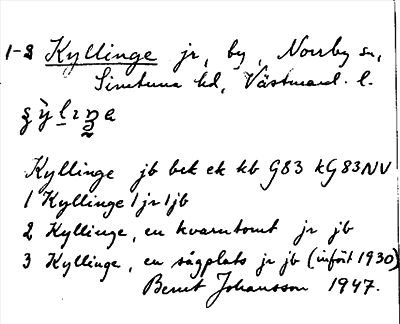 1-3 Kyllinge jr, by, Norrby sn,
Simtuna hd, Västmanl. l.
Kyllinge jb bek ek kb G83 kG83NV
1 Kyllinge 1 jr 1 jb
2 Kyllinge, en kvarntomt jr jb
3 Kyllinge, en sågplats jr jb (införd 1930)
Bernt Johansson 1947.